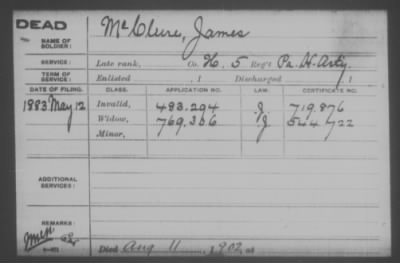 DEAD
NAME OF SOLDIER: McClure, James
SERVICE: Late rank, Co. H. 5 Reg't Pa. H. Arty.
TERM OF SERVICE: Enlisted , 1 Discharged , 1
DATE OF FILING. CLASS. APPLICATION NO. LAW. CERTIFICATE NO.
1883 May 12 Invalid, 483.294 J. 719.876
Widow, 769.306 J. 544.722
Minor,
ADDITIONAL SERVICES:
REMARKS:
Died Aug 11 , 1902, at